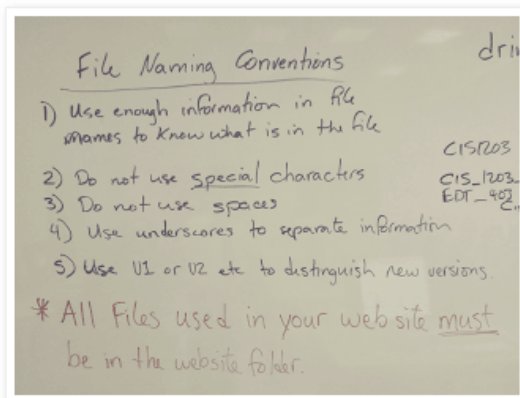 File Naming Conventions
dri
1) Use enough information in file
names to know what is in the file
CIS1203
2) Do not use special characters
CIS_1203_
3) Do not use spaces
EDT_403
C
4) Use underscores to separate information
5) Use V1 or V2 etc to distinguish new versions.
* All Files used in your website must
be in the website folder.